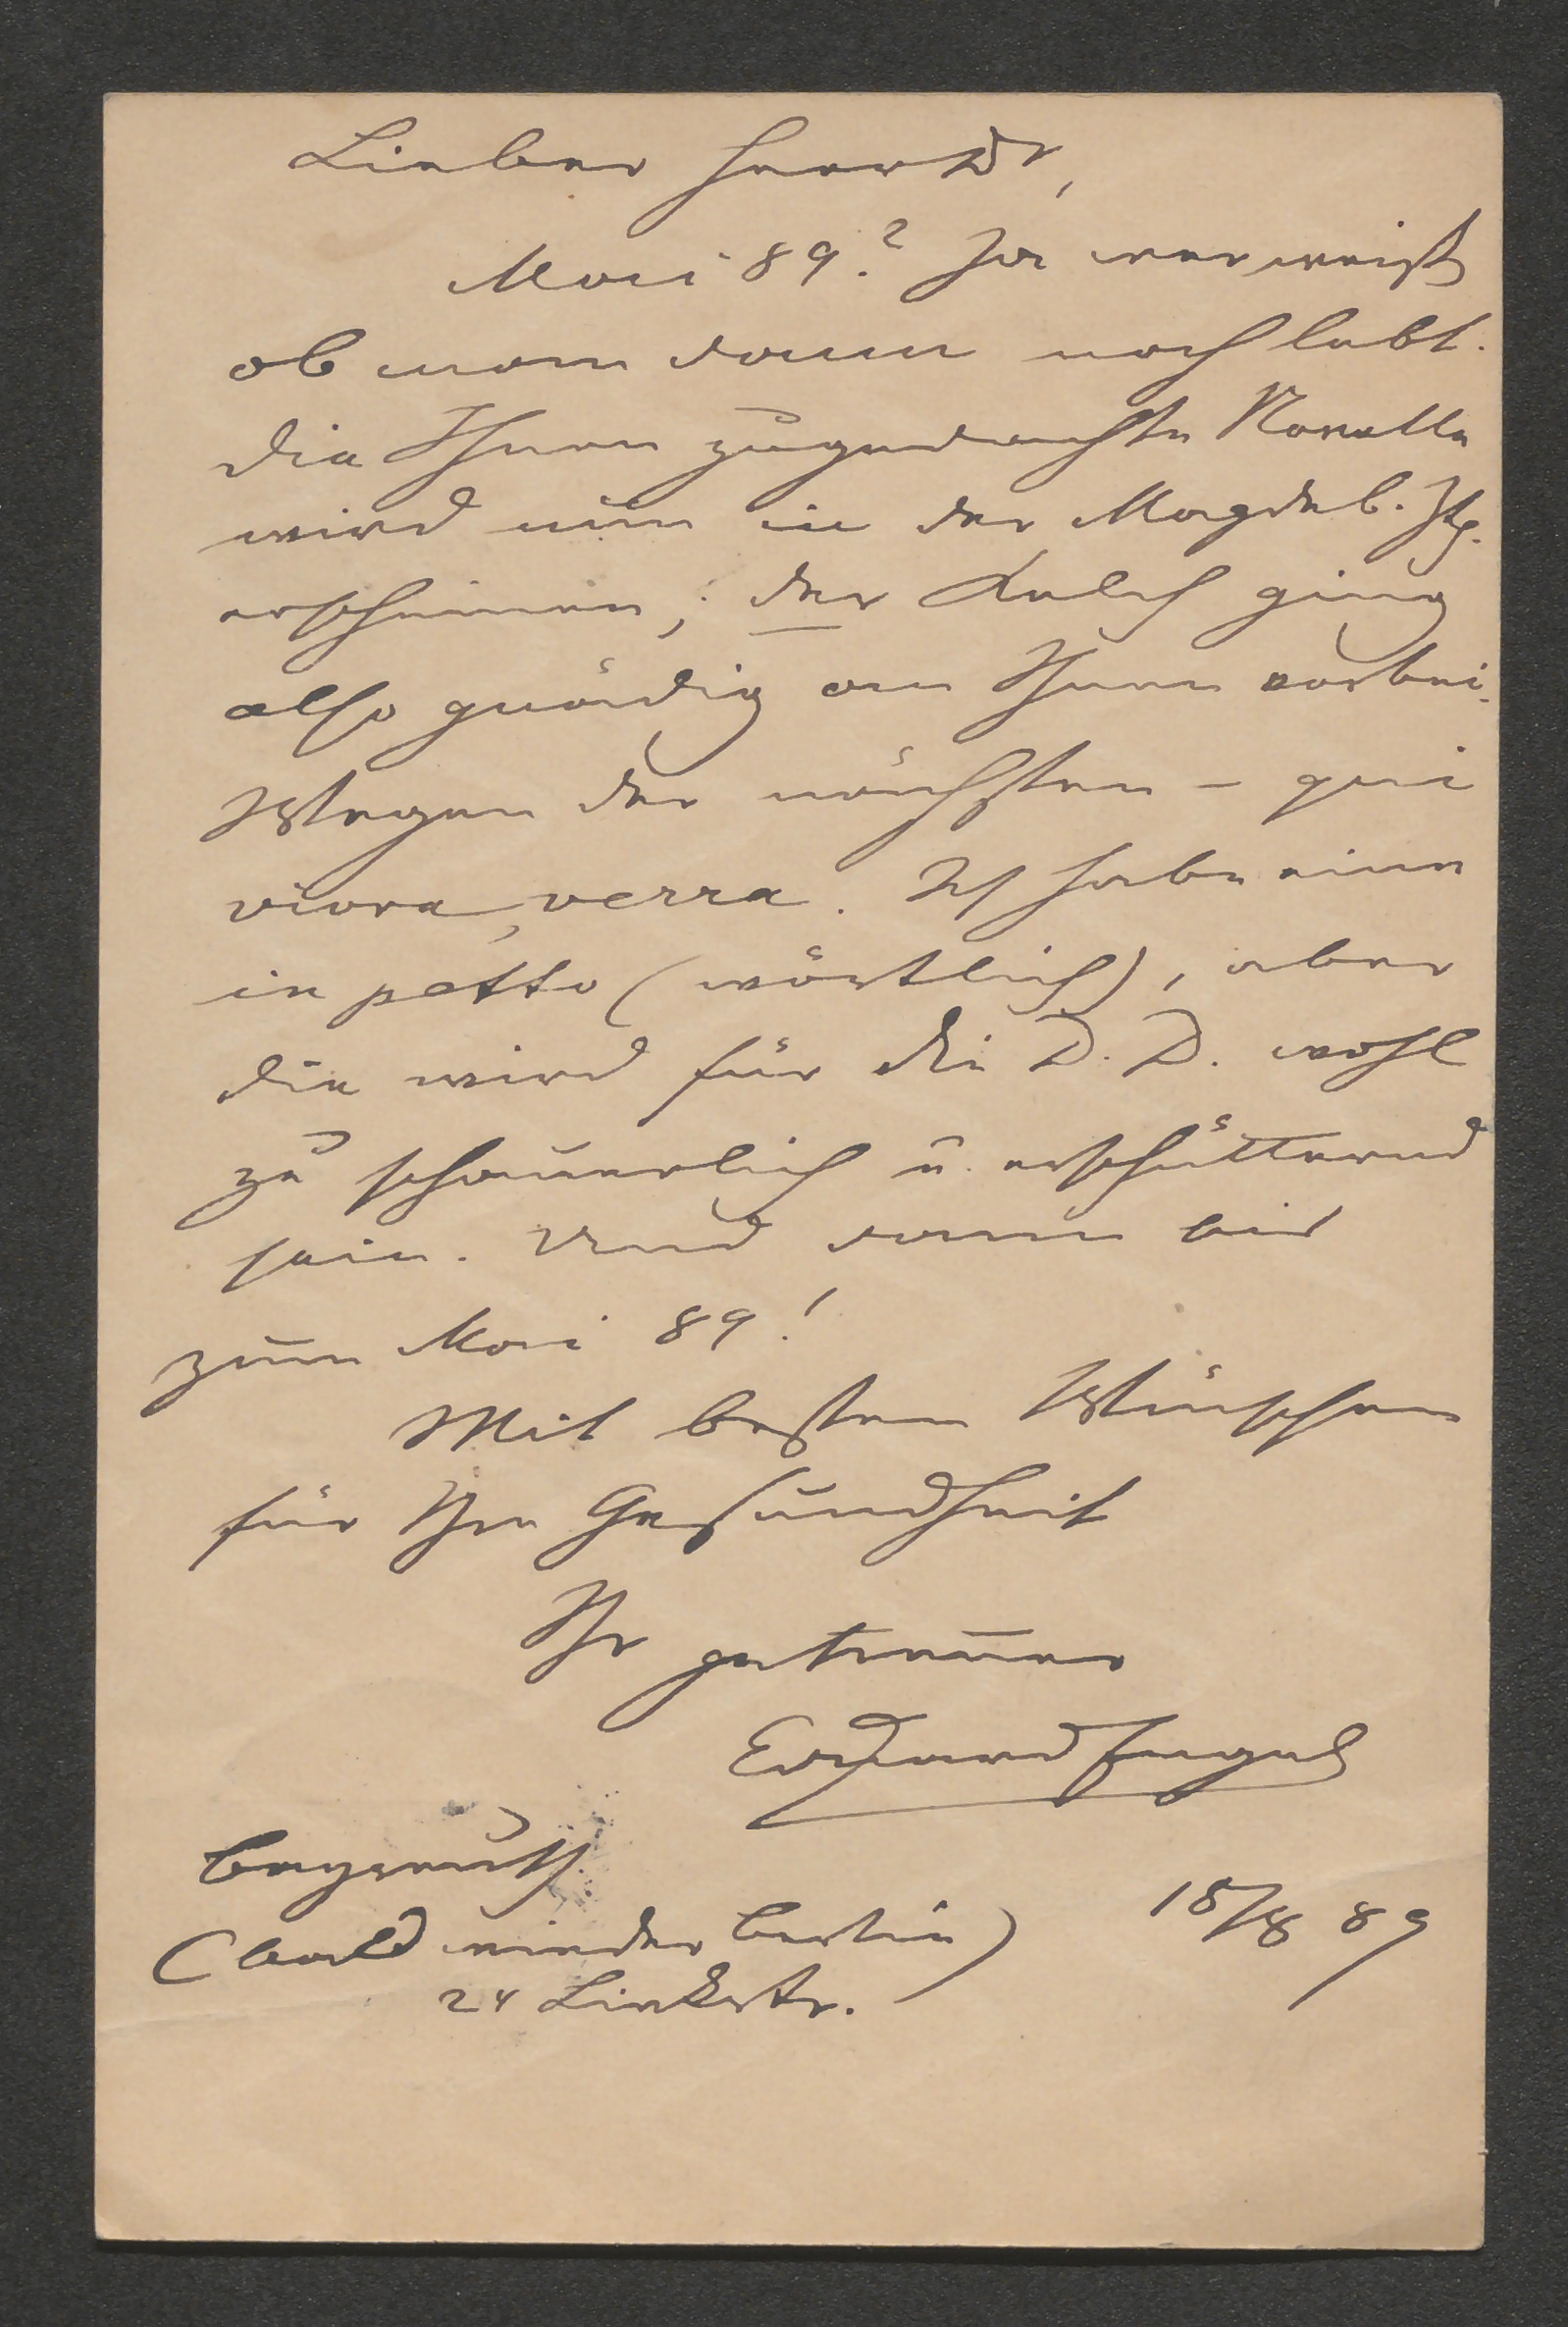 Lieber Herr Dr,
Mai 89? Ja wer weiß
ob man dann noch lebt.
Die Ihnen zugedachte Novelle
wird nun in der Magdeb. Ztg.
erscheinen; der Kelch ging
also gnädig an Ihnen vorbei.
Wegen der nächsten – qui
vivra, verra. Ich habe eine
in petto (wörtlich), aber
die wird für die D. D. wohl
zu schauerlich u. erschütternd
sein. Und dann bis
zum Mai 89!
Mit besten Wünschen
für Ihre Gesundheit
Ihr getreuer
Eduard Engel
Bayreuth
(bald wieder Berlin)
24 Linkstr.
18/8 89